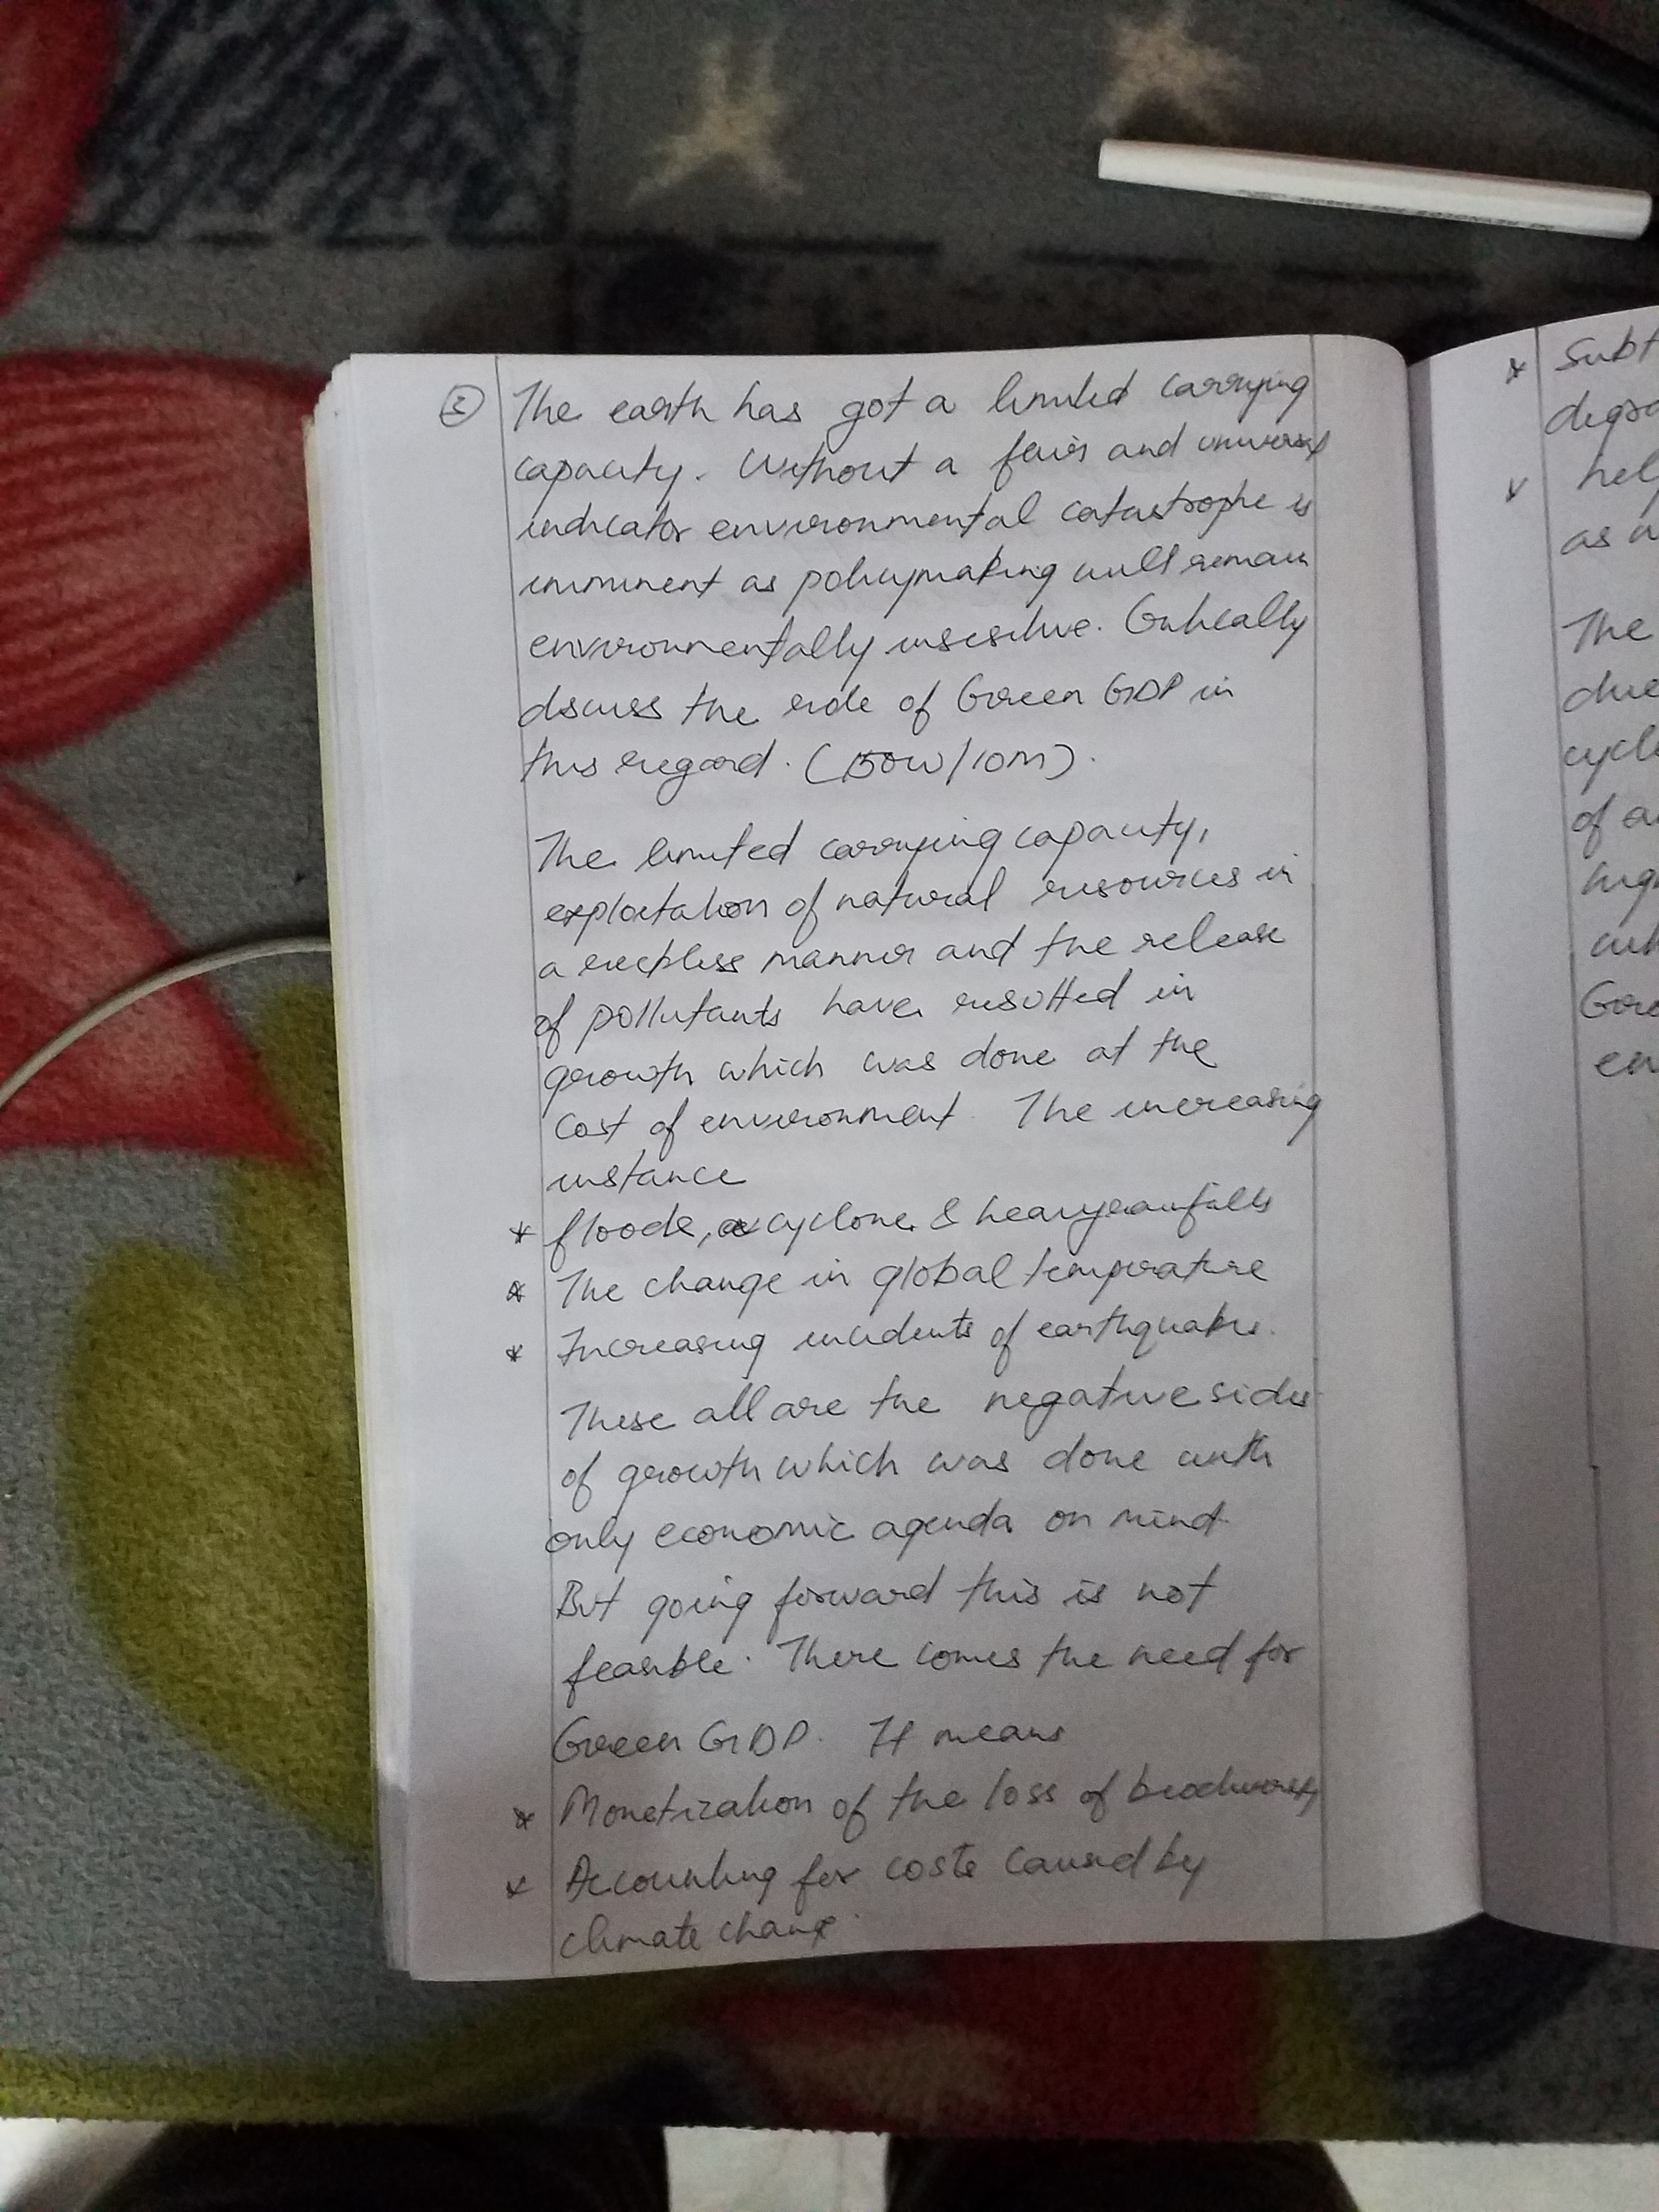 ② The earth has got a limited carrying
capacity. Without a fair and universal
indicator environmental catastrophe is
imminent as policymaking will remain
environmentally insesitive. Critically
discuss the role of Green GDP in
this regard. (150W/10M).
The limited carrying capacity,
exploitation of natural resources in
a reckless manner and the release
of pollutants have resulted in
growth which was done at the
cost of environment. The increasing
instance
* floods, cyclone & heavy rainfalls
* The change in global temperature
* Increasing incidents of earthquakes.
These all are the negative sides
of growth which was done with
only economic agenda on mind.
But going forward this is not
feasible. There comes the need for
Green GDP. It means
* Monetization of the loss of biodiversity
* Accounting for costs caused by
climate change.
* Subt
degra
* hel
as a
The
due
cycl
of a
hig
Gre
en